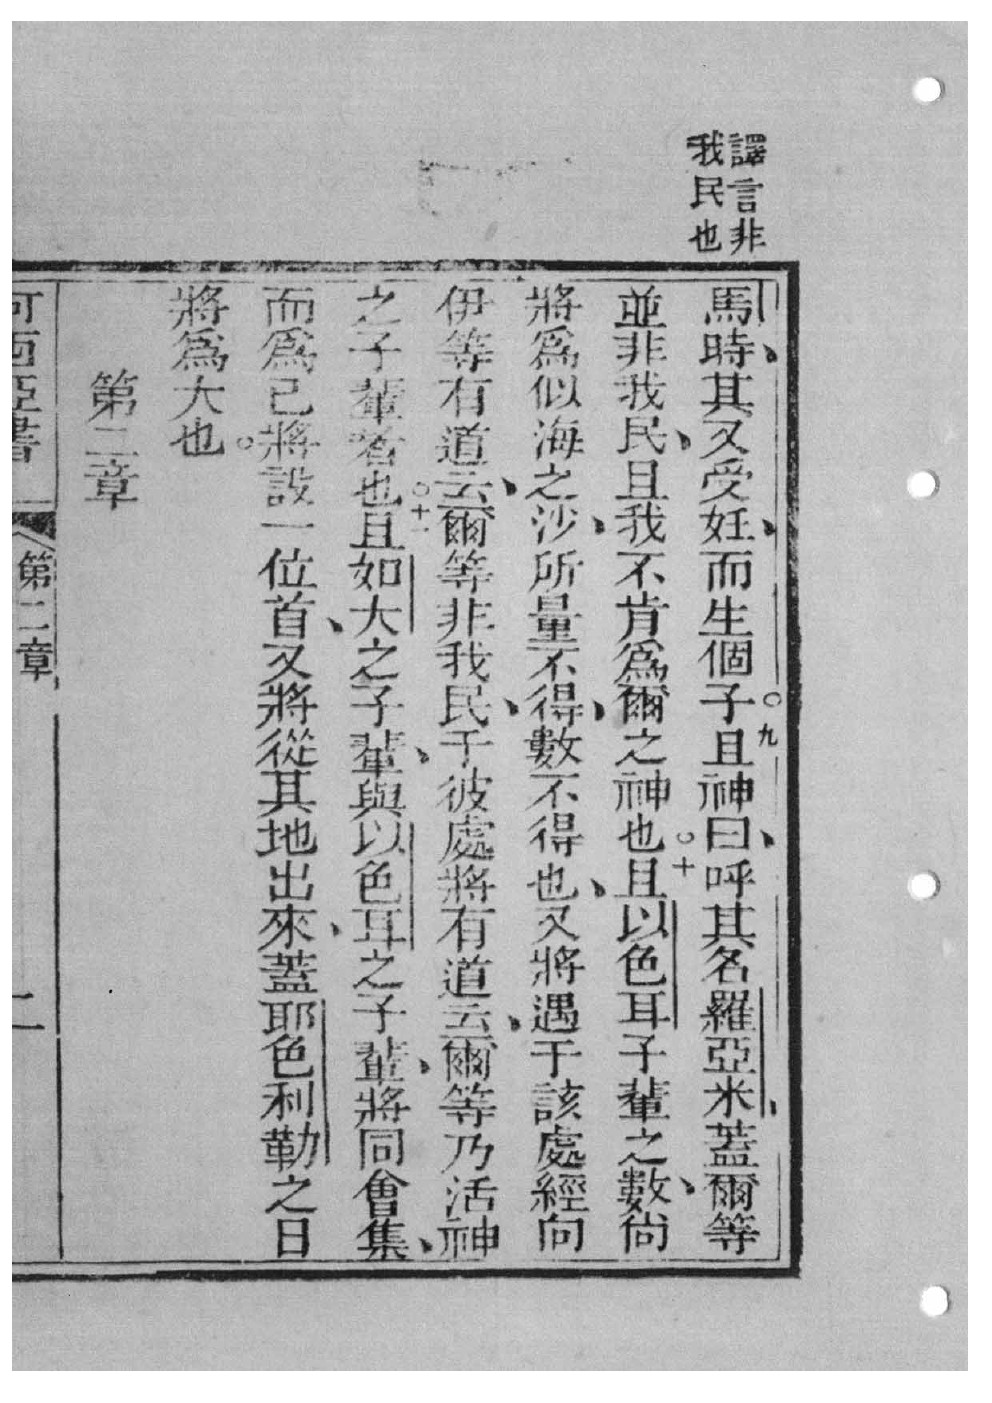 譯言非
我民也
馬時、其又受妊、而生個子○九且神曰、呼其名羅亞米、蓋爾等
並非我民、且我不肯爲爾之神也○十且以色耳子輩之數、尙
將爲似海之沙、所量不得、數不得也、又將遇于該處經向
伊等有道云、爾等非我民、于彼處將有道云、爾等乃活神
之子輩者也○十一且如大之子輩、與以色耳之子輩、將同會集、
而爲已將設一位首、又將從其地出來、蓋耶色利勒之日
將爲大也○
第二章
何西亞書
第二章
二